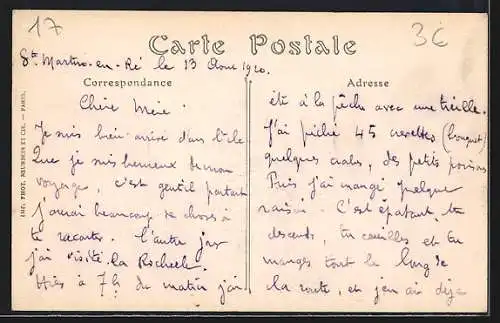 17
3€
Carte Postale
St Martin-en-Ré le 13 Aout 1920.
Correspondance
Adresse
IMP. PHOT. NEURDEIN ET CIE. — PARIS.
Chère Mémé
Je suis bien arrivé dans l'île
Que je suis heureux de mon
voyage, c'est gentil partout
j'aurai beaucoup de choses à
te raconter. L'autre jour
j'ai visité la Rochelle.
Hier à 7h du matin j'ai
été à la pêche avec une treille.
J'ai pêché 45 crevettes (bouquet)
quelques crabes, des petits poissons
Puis j'ai mangé quelque
raisin. C'est épatant, tu
descends, tu cueilles et tu
manges tout le long de
la route, et j'en ai déjà